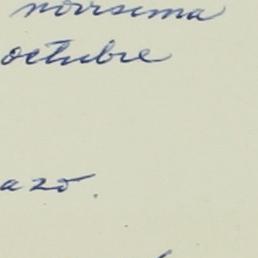 novísima
octubre
azo.